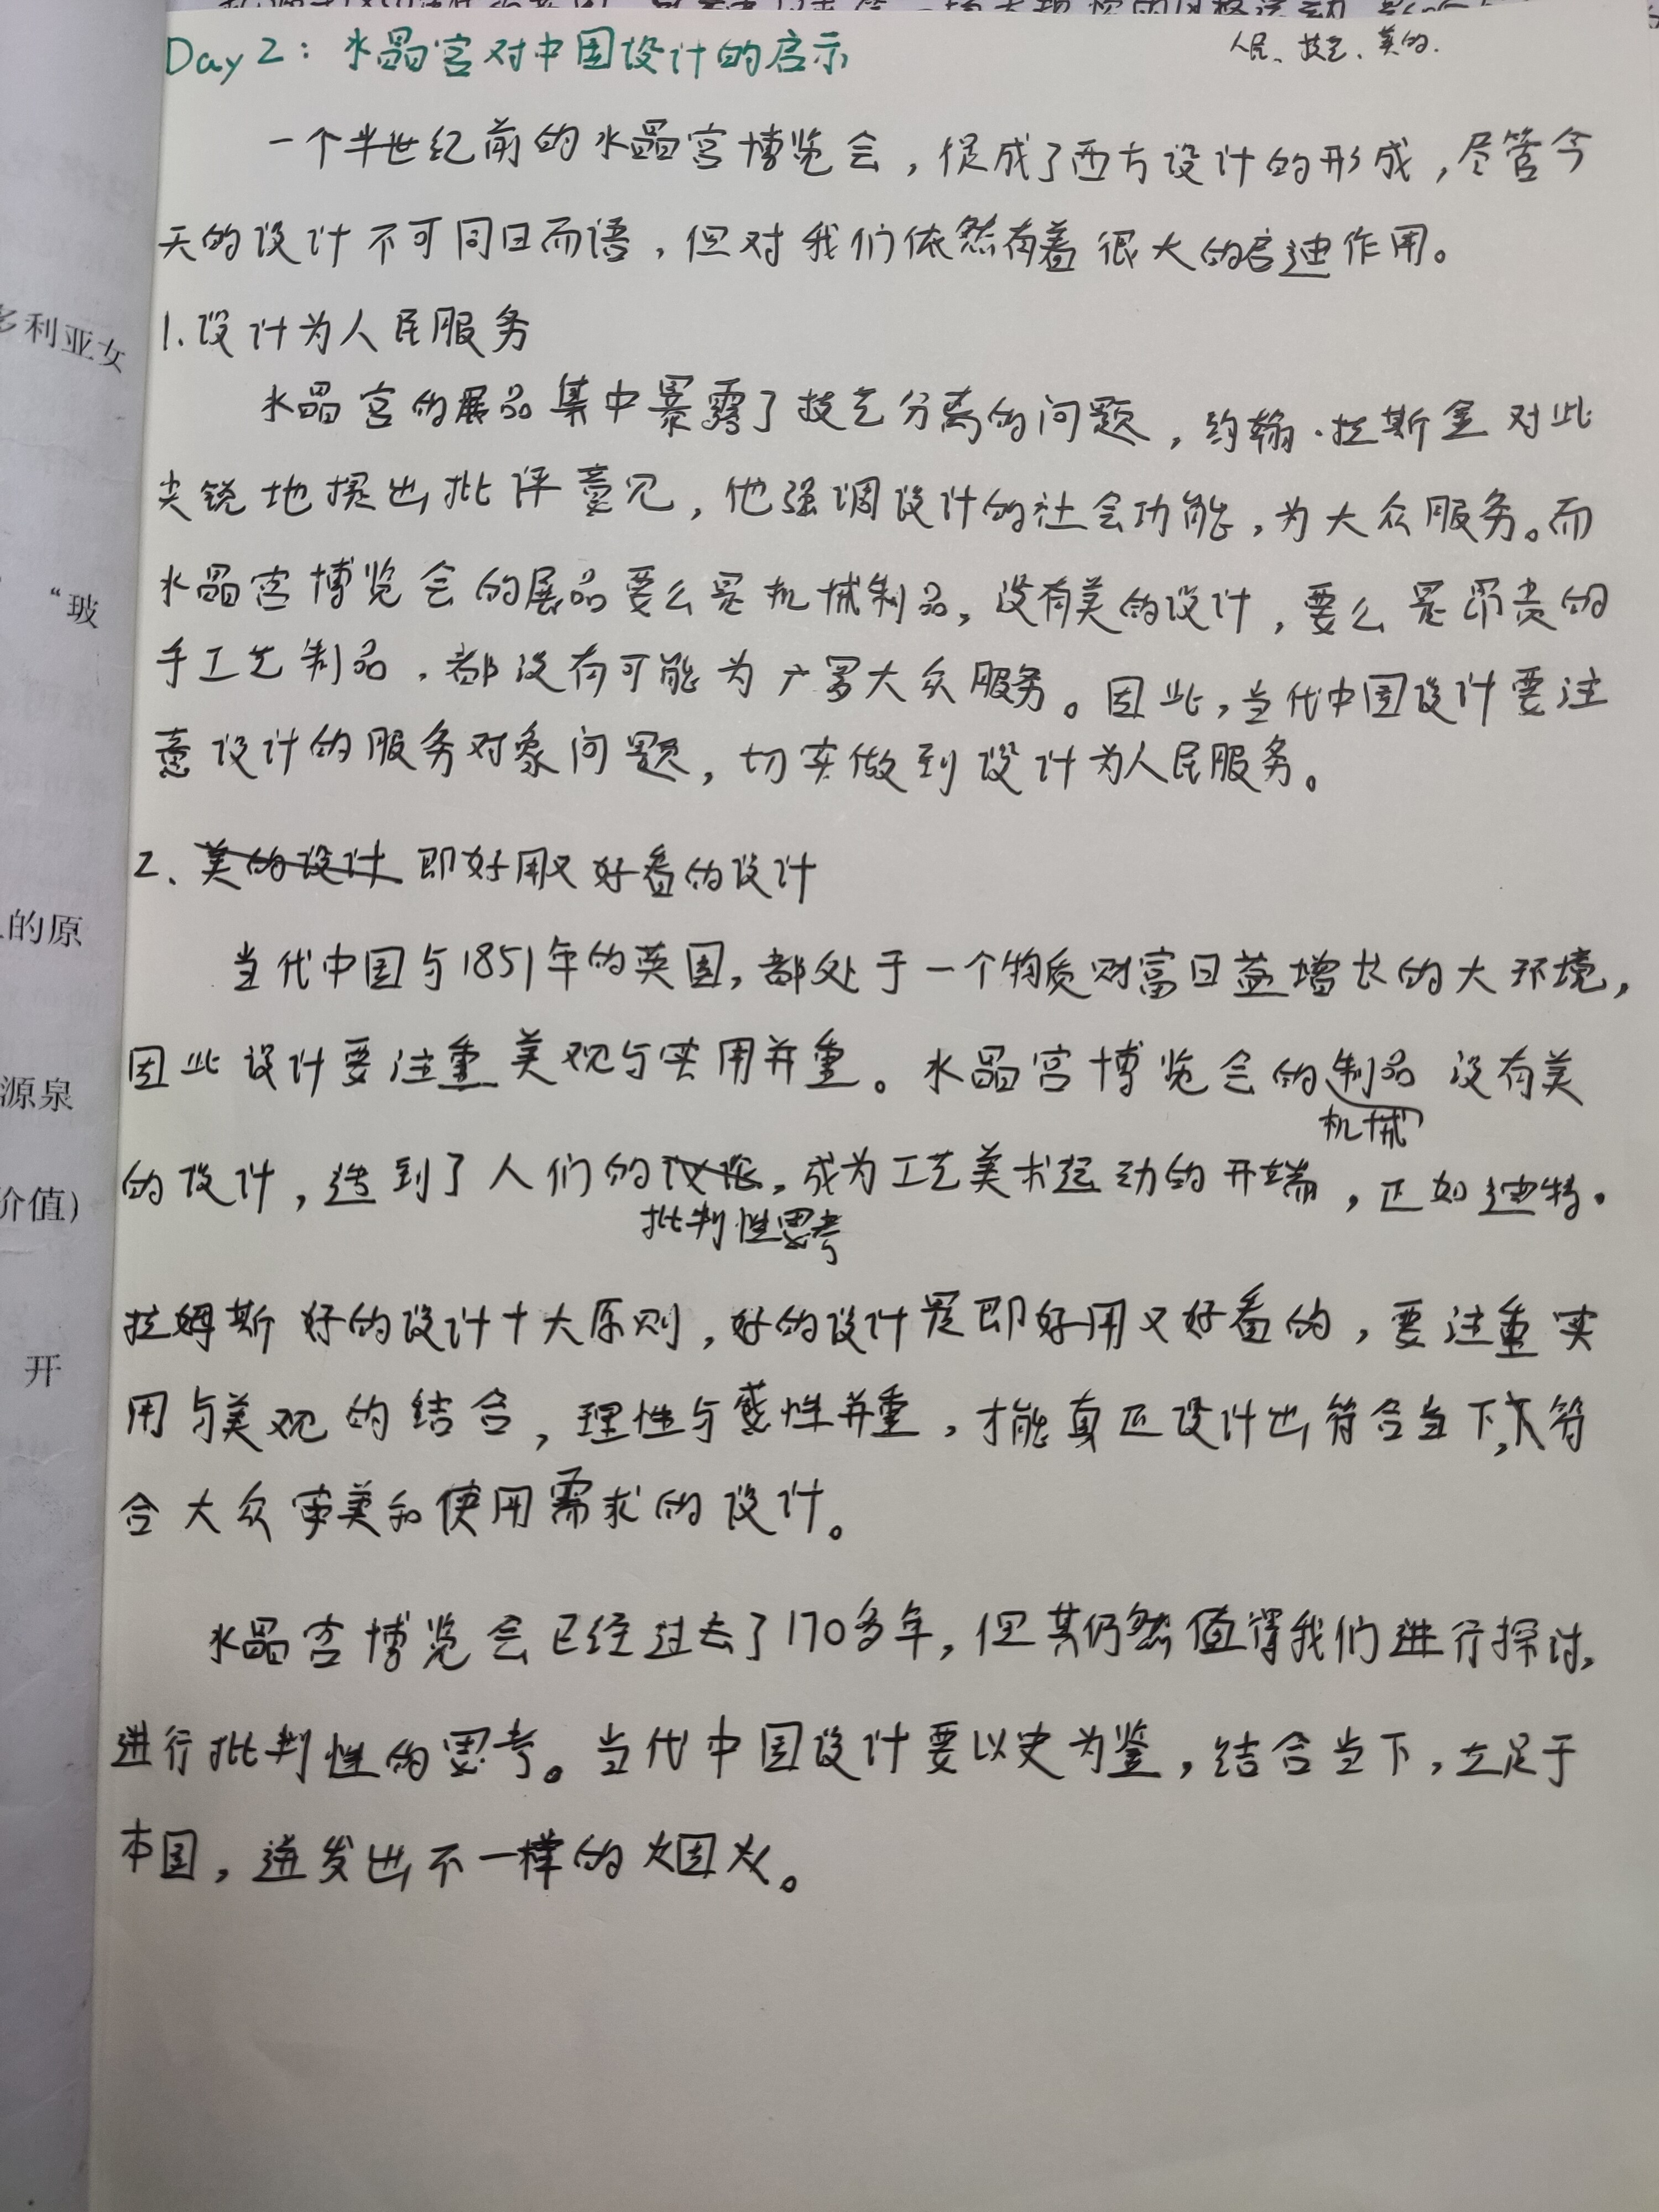 Day 2：水晶宫对中国设计的启示
人民、技艺、美的.
一个半世纪前的水晶宫博览会，促成了西方设计的形成，尽管今
天的设计不可同日而语，但对我们依然有着很大的启迪作用。
1.设计为人民服务
水晶宫的展品集中暴露了技艺分离的问题，约翰·拉斯金对此
尖锐地提出批评意见，他强调设计的社会功能，为大众服务。而
水晶宫博览会的展品要么是机械制品，没有美的设计，要么是昂贵的
手工艺制品，都没有可能为广大众服务。因此，当代中国设计要注
意设计的服务对象问题，切实做到设计为人民服务。
2、美的设计 即好用又好看的设计
当代中国与1851年的英国，都处于一个物质财富日益增长的大环境，
因此设计要注重美观与实用并重。水晶宫博览会的制品没有美
机械
的设计，遭到了人们的，成为工艺美术运动的开端，正如迪特·
批判性思考
拉姆斯好的设计十大原则，好的设计是即好用又好看的，要注重实
用与美观的结合，理性与感性并重，才能真正设计出符合当下，符
合大众审美和使用需求的设计。
水晶宫博览会已经过去了170多年，但其仍然值得我们进行探讨，
进行批判性的思考。当代中国设计要以史为鉴，结合当下，立足于
本国，迸发出不一样的烟火。
多利亚女
“玻
的原
源泉
价值）
开